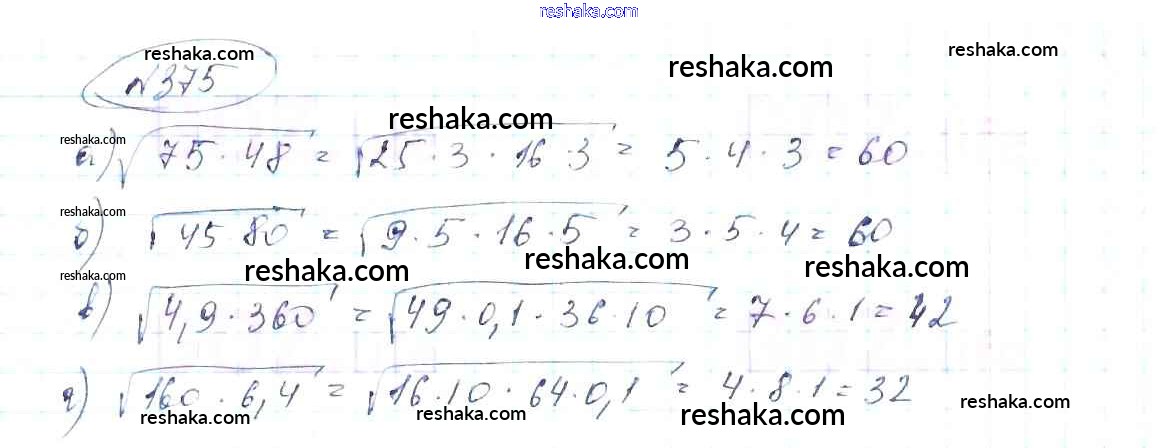 reshaka.com
reshaka.com
reshaka.com
reshaka.com
№375
reshaka.com
reshaka.com
а) √75·48 = √25·3·16·3 = 5·4·3 = 60
reshaka.com
б) √45·80 = √9·5·16·5 = 3·5·4 = 60
reshaka.com
reshaka.com
reshaka.com
reshaka.com
в) √4,9·360 = √49·0,1·36·10 = 7·6·1 = 42
г) √160·6,4 = √16·10·64·0,1 = 4·8·1 = 32
reshaka.com
reshaka.com
reshaka.com
reshaka.com